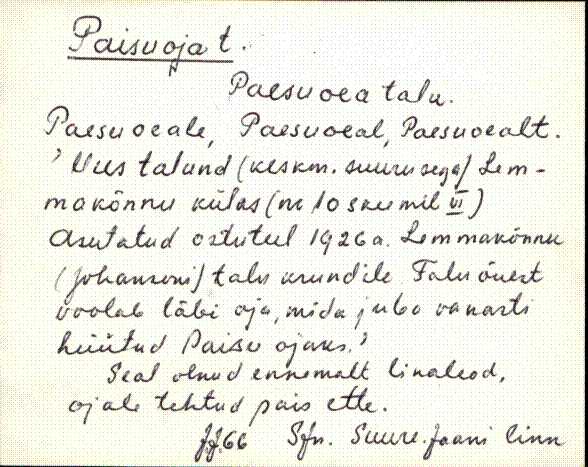 Paisuoja t.
Paesuoea talu.
Paesuoeale, Paesuoeal, Paesuoealt.
'Uus talund (keskm. suurusega) Lem-
makõnnu külas (nr 10 skeemil VI)
Asutatud ostuteel 1926 a. Lemmakõnnu
(Johansoni) talu krundile Talu õuest
voolab läbi oja, mida juba vanasti
hüütud Paisu ojaks.'
Seal olnud ennemalt linaleod,
ojale tehtud pais ette.
J.J. 66 Sfn. Suure-Jaani linn